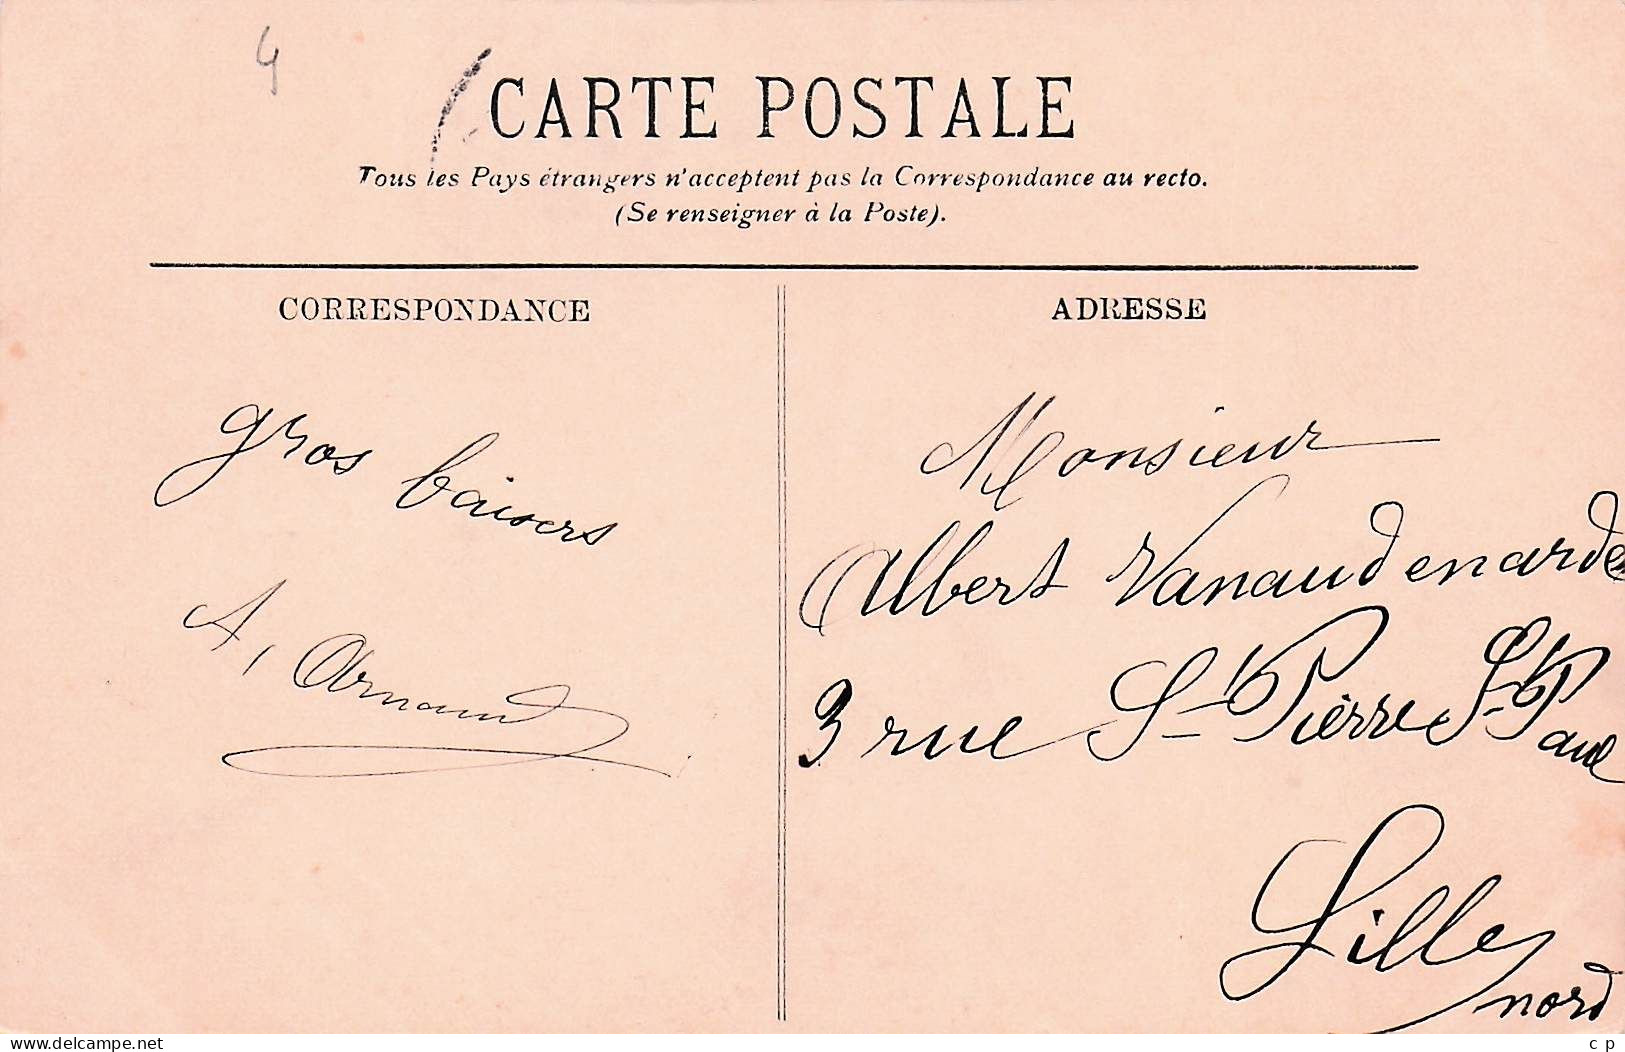 4
CARTE POSTALE
Tous les Pays étrangers n'acceptent pas la Correspondance au recto.
(Se renseigner à la Poste).
CORRESPONDANCE
gros baisers
A, Arnaud
ADRESSE
Monsieur
Albert Vanaudenarde
3 rue St Pierre St Paul
Lille
nord
delcampe.net
c p